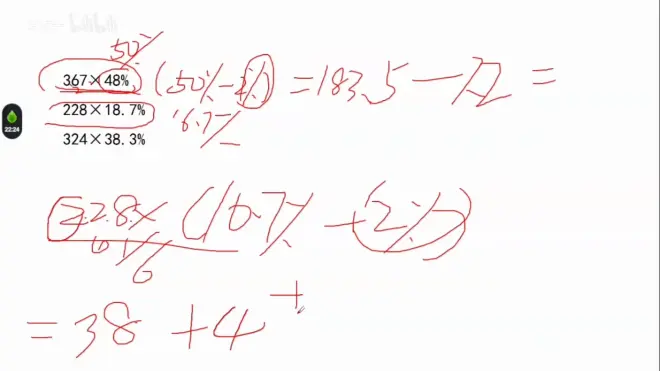 50%
367×48% (50%-2%) =183.5-7.2=
228×18.7% 16.7%
22:24
324×38.3%
228×(16.7%+2%)
1/6
=38+4+